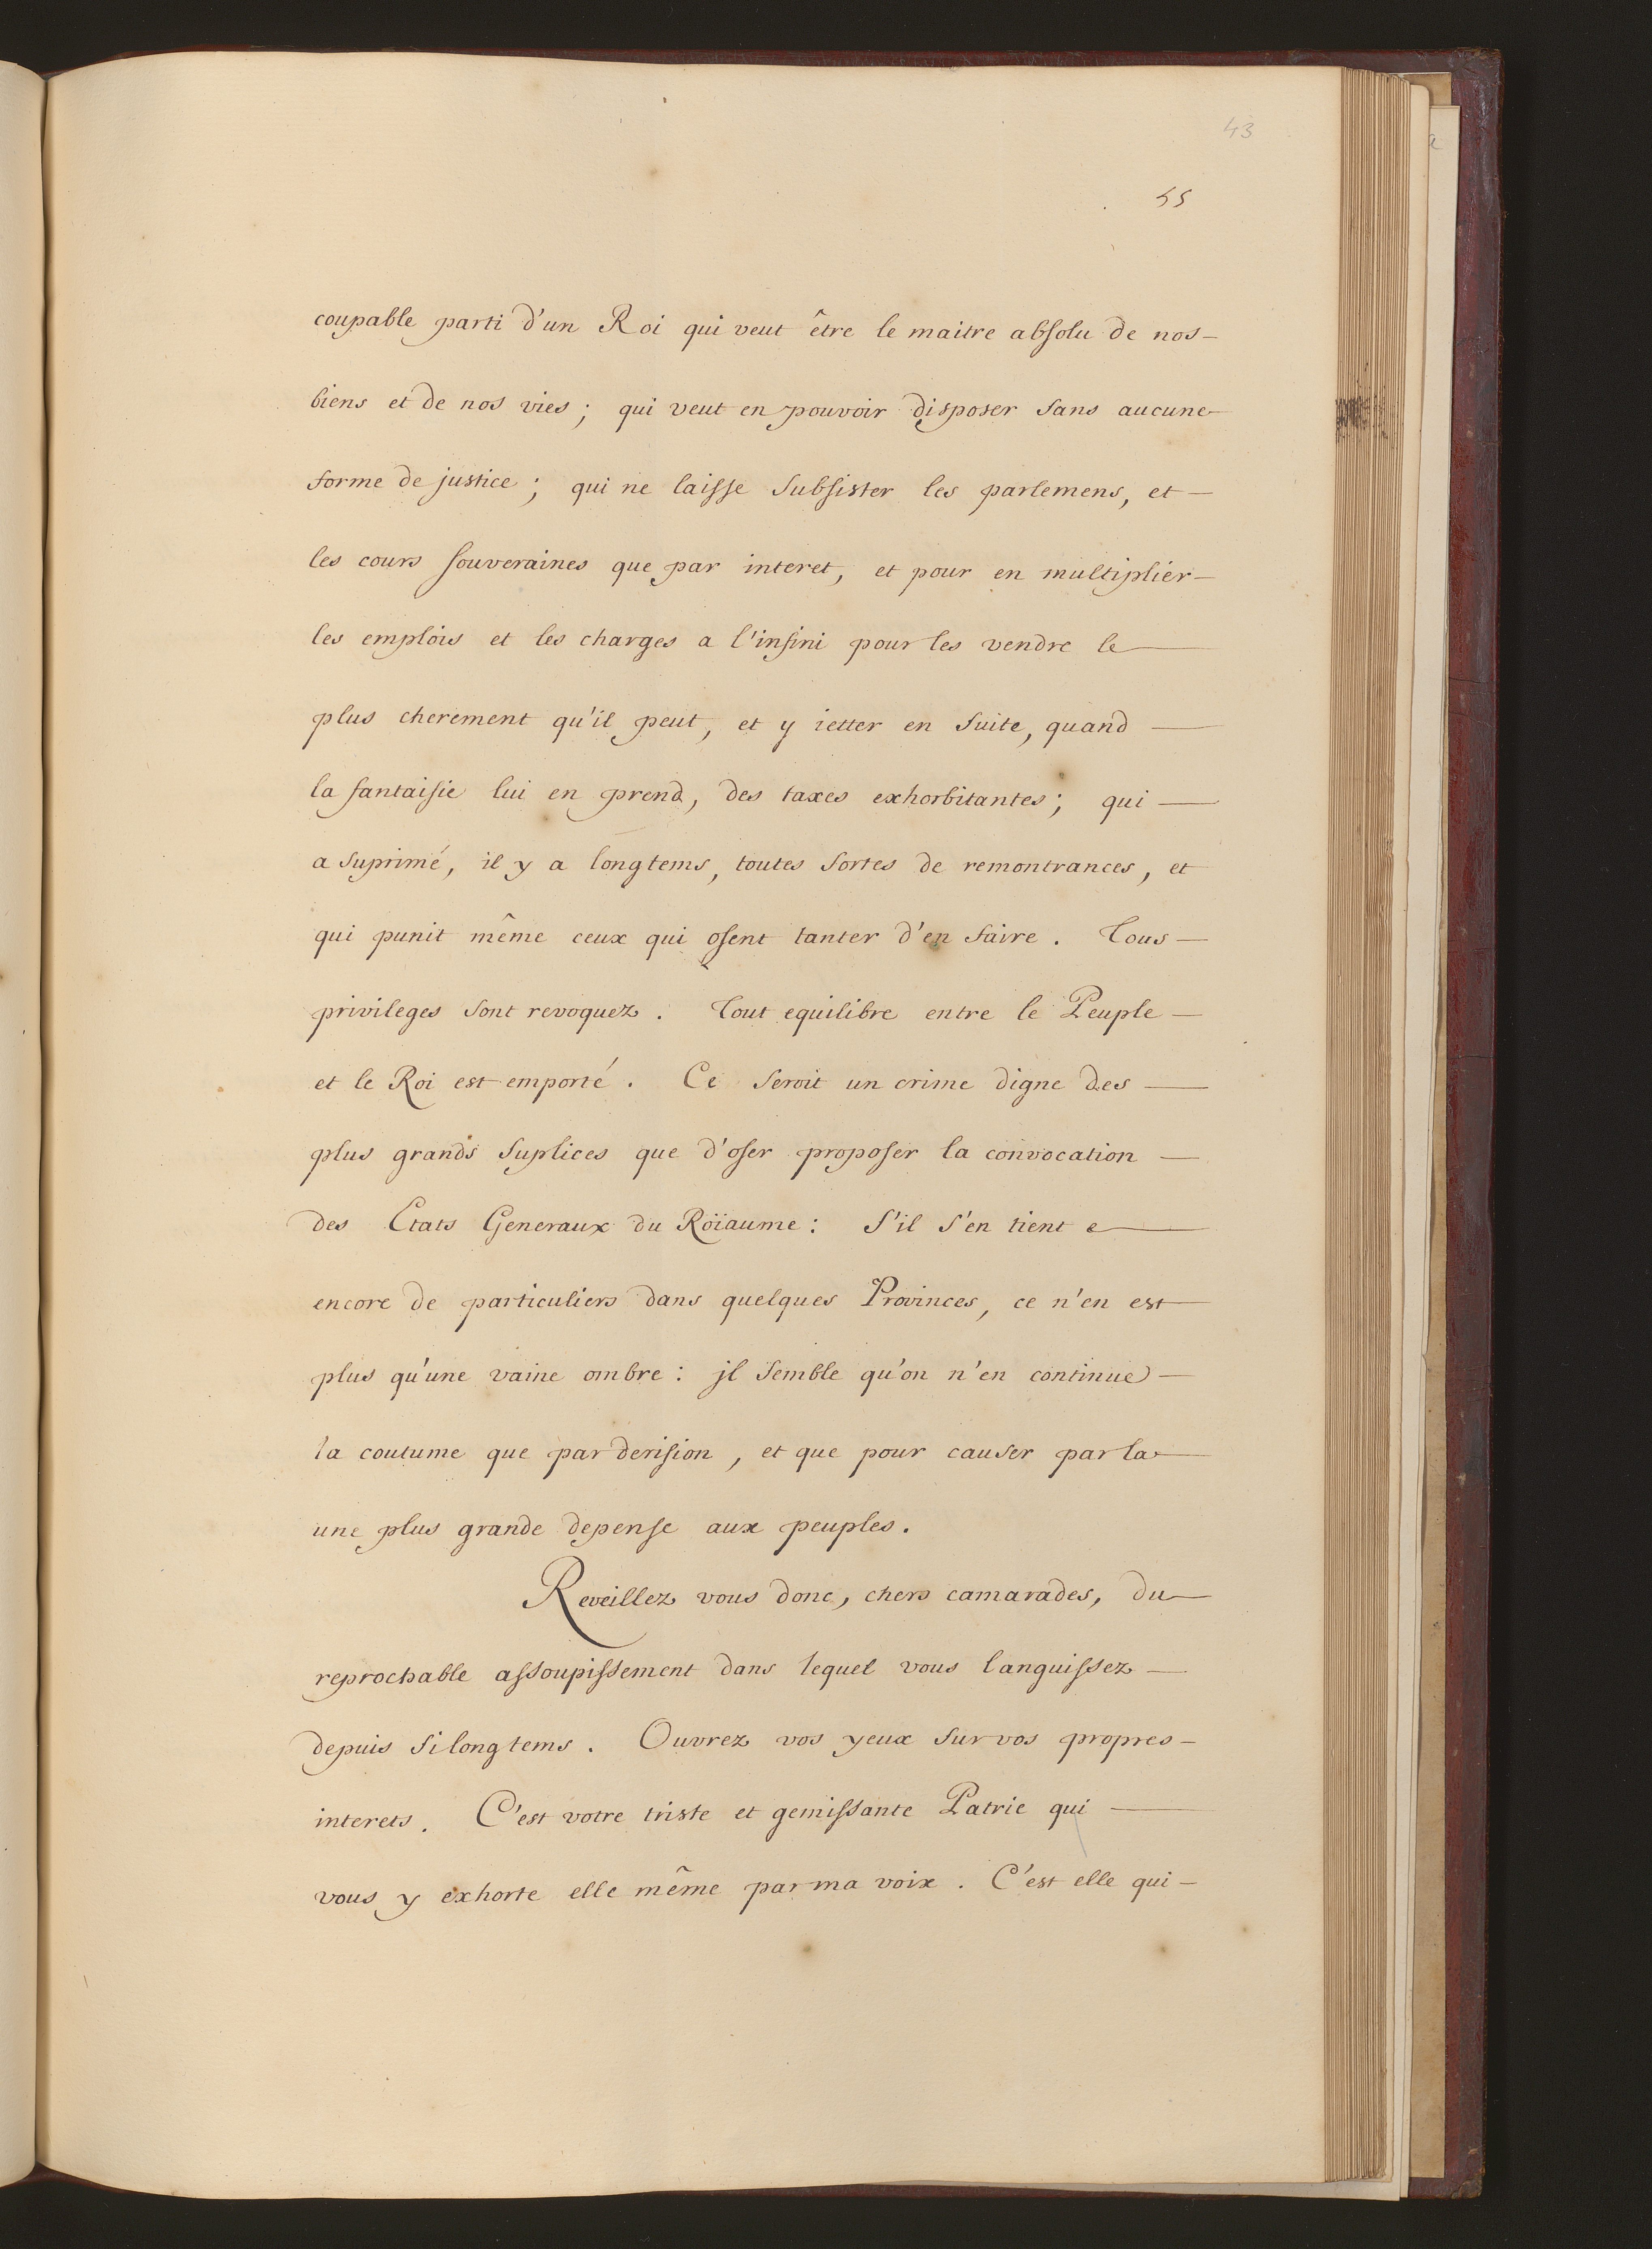 43
55
coupable parti d'un Roi qui veut être le maitre absolu de nos
biens et de nos vies ; qui veut en pouvoir disposer sans aucune
forme de justice ; qui ne laisse subsister les parlemens, et
les cours souveraines que par interet, et pour en multiplier
les emplois et les charges a l'infini pour les vendre le
plus cherement qu'il peut, et y ietter en suite, quand
la fantaisie lui en prend, des taxes exhorbitantes ; qui
a suprimé, il y a longtems, toutes sortes de remontrances, et
qui punit même ceux qui osent tanter d'en faire . Tous
privileges sont revoquez . Tout equilibre entre le Peuple
et le Roi est emporté . Ce seroit un crime digne des
plus grands suplices que d'oser proposer la convocation
des Etats Generaux du Roïaume : S'il s'en tient
encore de particuliers dans quelques Provinces, ce n'en est
plus qu'une vaine ombre : jl semble qu'on n'en continue
la coutume que par derision , et que pour causer par la
une plus grande depense aux peuples .
Reveillez vous donc, chers camarades, du
reprochable assoupissement dans lequel vous languissez
depuis si longtems . Ouvrez vos yeux sur vos propres
interets . C'est votre triste et gemissante Patrie qui
vous y exhorte elle même par ma voix . C'est elle qui